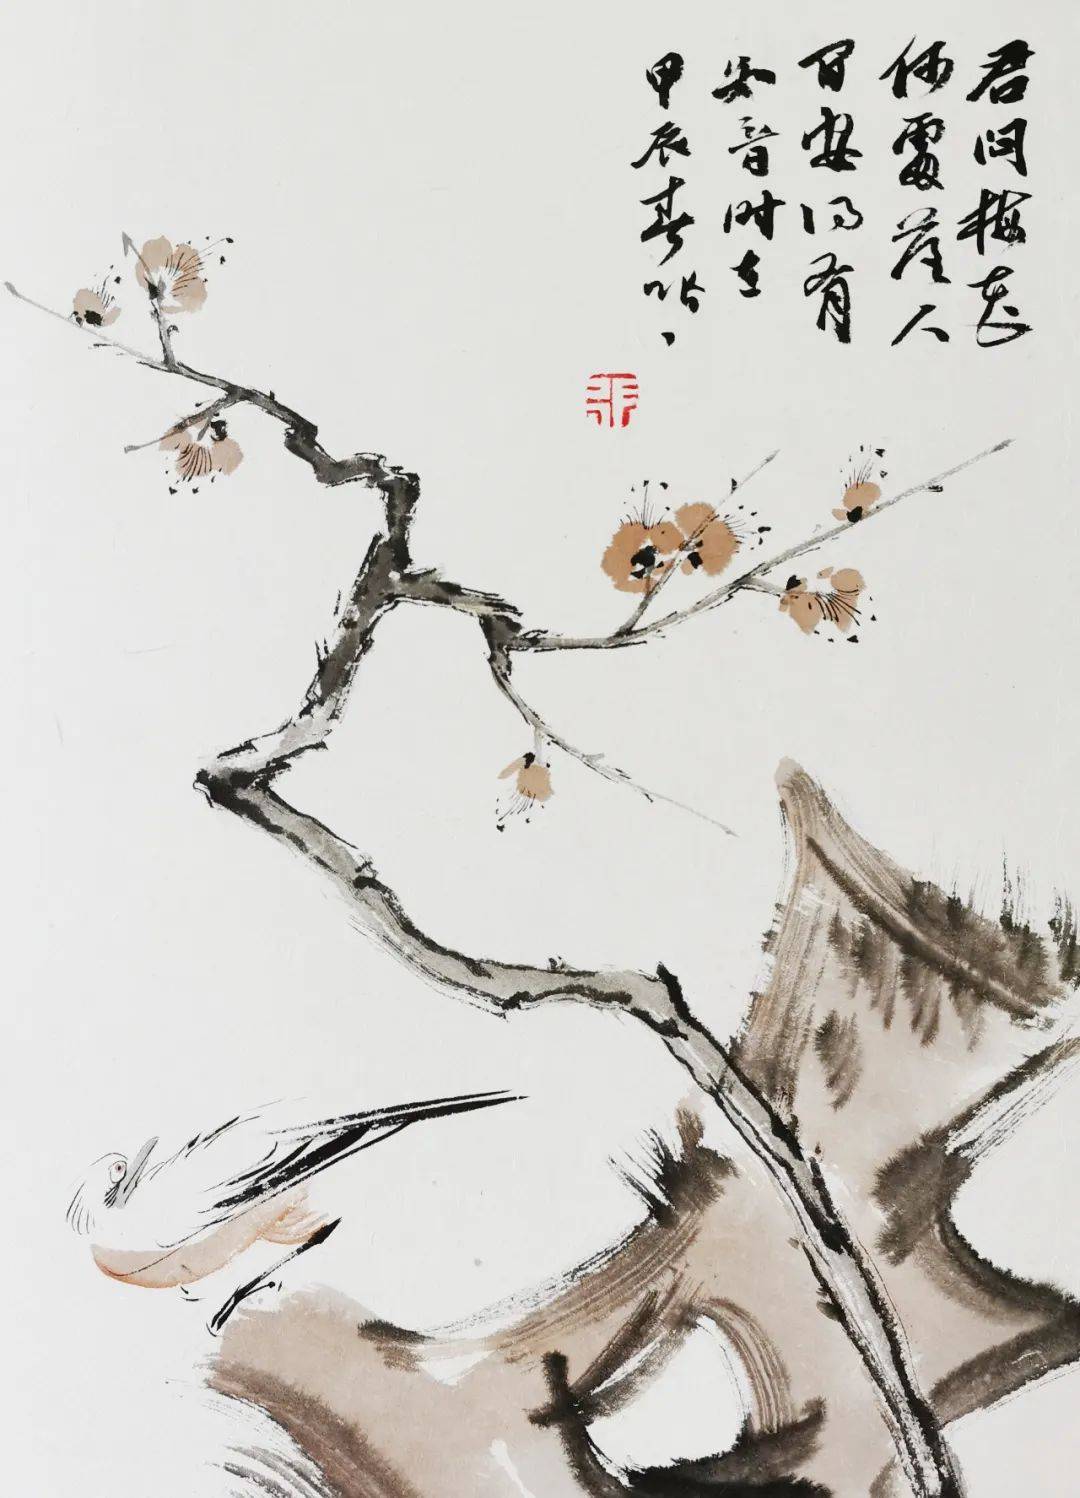 君问梅花
何處落人
间安得有
知音时在
甲辰春